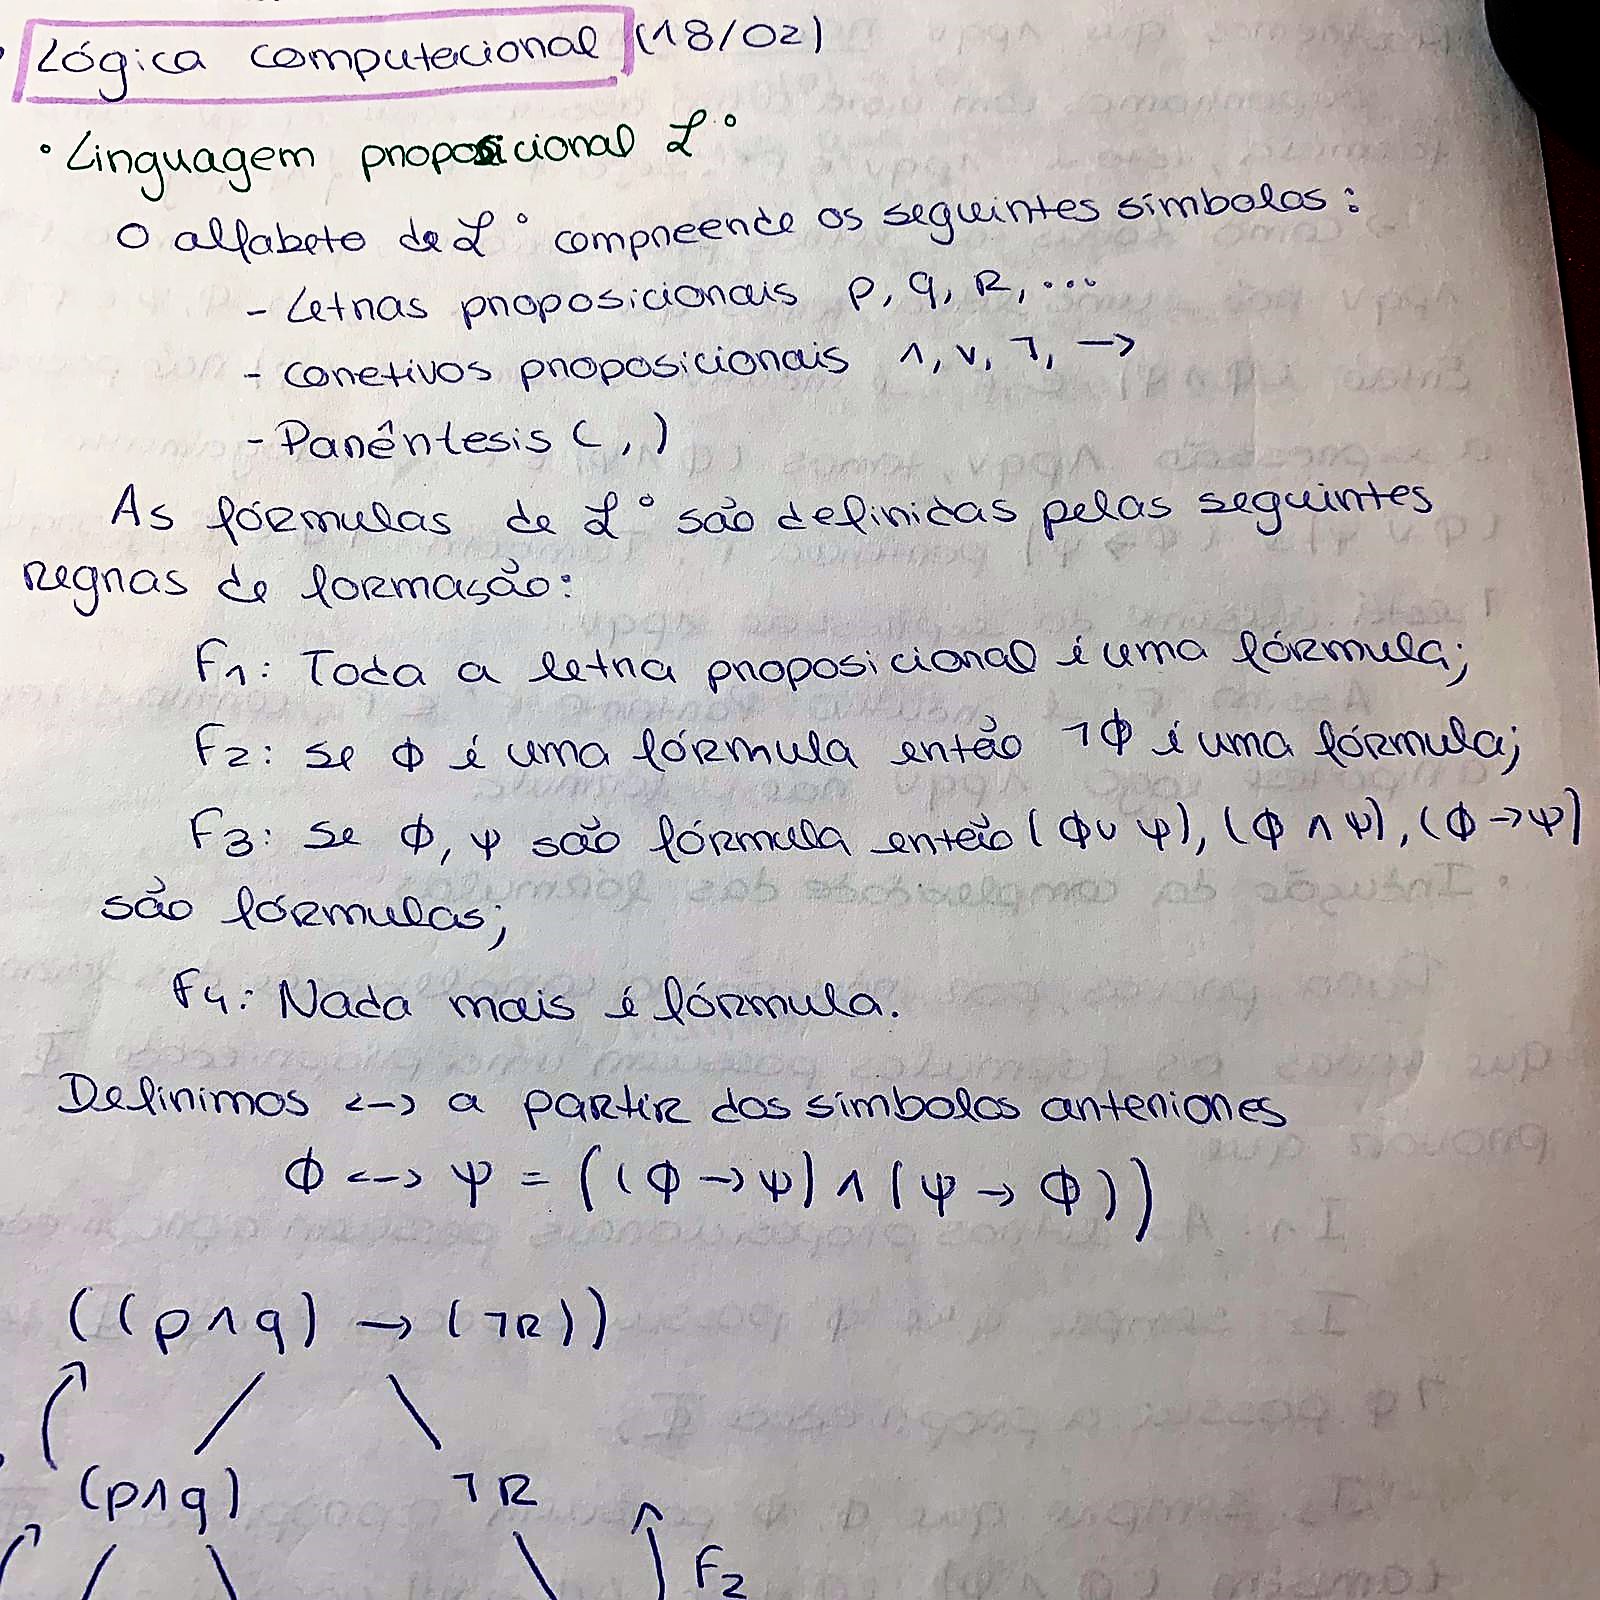 Lógica computacional (18/02)
• Linguagem proposicional ℒ°
O alfabeto de ℒ° compreende os seguintes símbolos:
- Letras proposicionais p, q, R, ...
- Conetivos proposicionais ∧, ∨, ¬, →
- Parêntesis ( , )
As fórmulas de ℒ° são definidas pelas seguintes
regras de formação:
F1: Toda a letra proposicional é uma fórmula;
F2: Se Φ é uma fórmula então ¬Φ é uma fórmula;
F3: Se Φ, Ψ são fórmula então (Φ∨Ψ), (Φ∧Ψ), (Φ→Ψ)
são fórmulas;
F4: Nada mais é fórmula.
Definimos <-> a partir dos símbolos anteriores
Φ <-> Ψ = ((Φ→Ψ)∧(Ψ→Φ))
((p∧q) → (¬R))
(p∧q) ¬R
F2